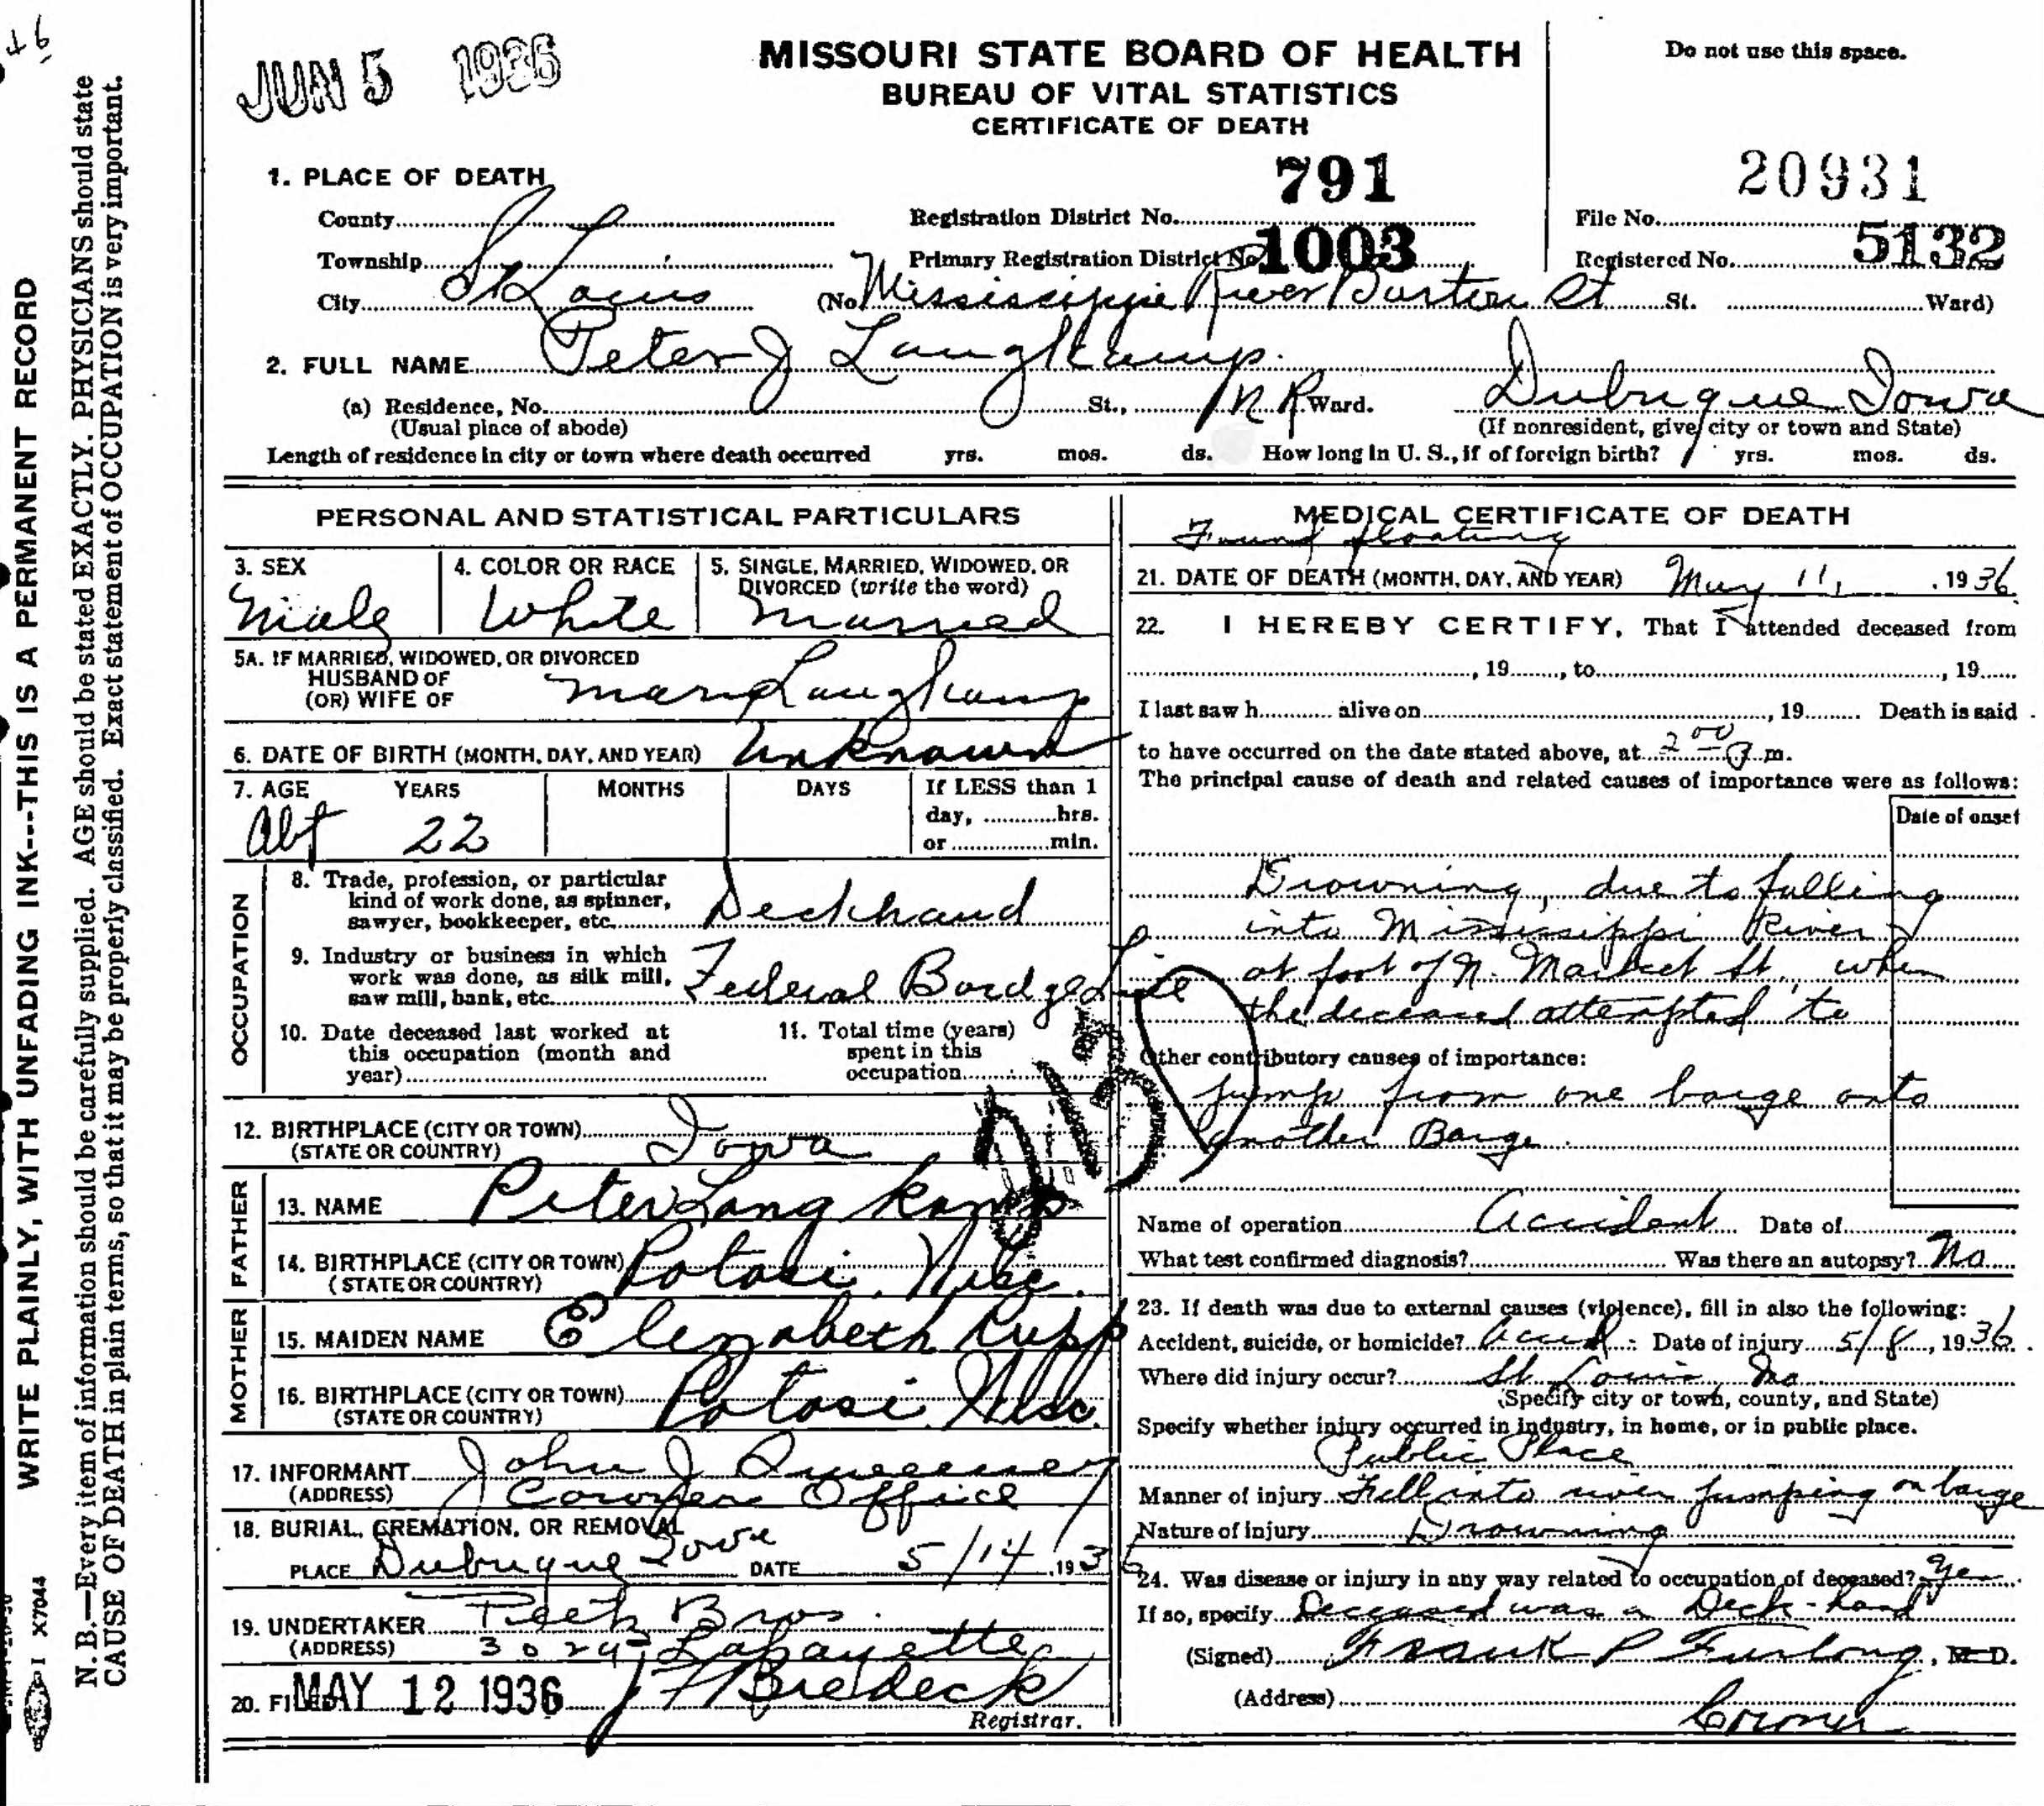 46
JUN 5 1936
MISSOURI STATE BOARD OF HEALTH
BUREAU OF VITAL STATISTICS
CERTIFICATE OF DEATH
Do not use this space.
1. PLACE OF DEATH
County
Township
City St Louis
Registration District No. 791
Primary Registration District No. 1003
(No Mississippie River Burten St St. Ward)
File No. 20931
Registered No. 5132
2. FULL NAME Peter J Langkamp.
(a) Residence, No. St., N R Ward. Dubuque Iowa
(Usual place of abode) (If nonresident, give city or town and State)
Length of residence in city or town where death occurred yrs. mos. ds. How long in U. S., if of foreign birth? yrs. mos. ds.
PERSONAL AND STATISTICAL PARTICULARS
3. SEX
Male
4. COLOR OR RACE
White
5. SINGLE, MARRIED, WIDOWED, OR
DIVORCED (write the word)
Married
5A. IF MARRIED, WIDOWED, OR DIVORCED
HUSBAND OF
(OR) WIFE OF Mary Langkamp
6. DATE OF BIRTH (MONTH, DAY, AND YEAR) Unknown
7. AGE YEARS MONTHS DAYS If LESS than 1
day, hrs.
or min.
Abt 22
OCCUPATION
8. Trade, profession, or particular
kind of work done, as spinner,
sawyer, bookkeeper, etc. Deckhand
9. Industry or business in which
work was done, as silk mill,
saw mill, bank, etc. Federal Bardge Line
10. Date deceased last worked at
this occupation (month and
year)
11. Total time (years)
spent in this
occupation
12. BIRTHPLACE (CITY OR TOWN) Iowa
(STATE OR COUNTRY)
FATHER
13. NAME Peter Lang kamp
14. BIRTHPLACE (CITY OR TOWN) Potosi, Wisc.
(STATE OR COUNTRY)
MOTHER
15. MAIDEN NAME Elizabeth Rupp
16. BIRTHPLACE (CITY OR TOWN) Potosi Wisc.
(STATE OR COUNTRY)
17. INFORMANT John J
(ADDRESS) Coroner Office
18. BURIAL, CREMATION, OR REMOVAL
PLACE Dubuque Iowa DATE 5/14, 1936
19. UNDERTAKER Peetz Bros.
(ADDRESS) Lafayette
20. FILED MAY 12 1936 J F Bredeck
Registrar.
MEDICAL CERTIFICATE OF DEATH
Found floating
21. DATE OF DEATH (MONTH, DAY, AND YEAR) May 11, , 1936
22. I HEREBY CERTIFY, That I attended deceased from
, 19 , to , 19
I last saw h alive on , 19 Death is said
to have occurred on the date stated above, at 2 00 P m.
The principal cause of death and related causes of importance were as follows:
Date of onset
Drowning, due to falling
into Mississippi River
at foot of N. Market St. when
the deceased attempted to
Other contributory causes of importance:
jump from one barge onto
another Barge.
Name of operation Accident Date of
What test confirmed diagnosis? Was there an autopsy? No
23. If death was due to external causes (violence), fill in also the following:
Accident, suicide, or homicide? Accid Date of injury 5/8, 1936
Where did injury occur? St Louis, Mo
(Specify city or town, county, and State)
Specify whether injury occurred in industry, in home, or in public place.
Public Place
Manner of injury Fell into river jumping on barge
Nature of injury Drowning
24. Was disease or injury in any way related to occupation of deceased? Yes
If so, specify Deceased was a Deck-hand
(Signed) Frank P Furlong, M. D.
(Address)
Coroner
WRITE PLAINLY, WITH UNFADING INK---THIS IS A PERMANENT RECORD
N. B.—Every item of information should be carefully supplied. AGE should be stated EXACTLY. PHYSICIANS should state
CAUSE OF DEATH in plain terms, so that it may be properly classified. Exact statement of OCCUPATION is very important.
I X7044